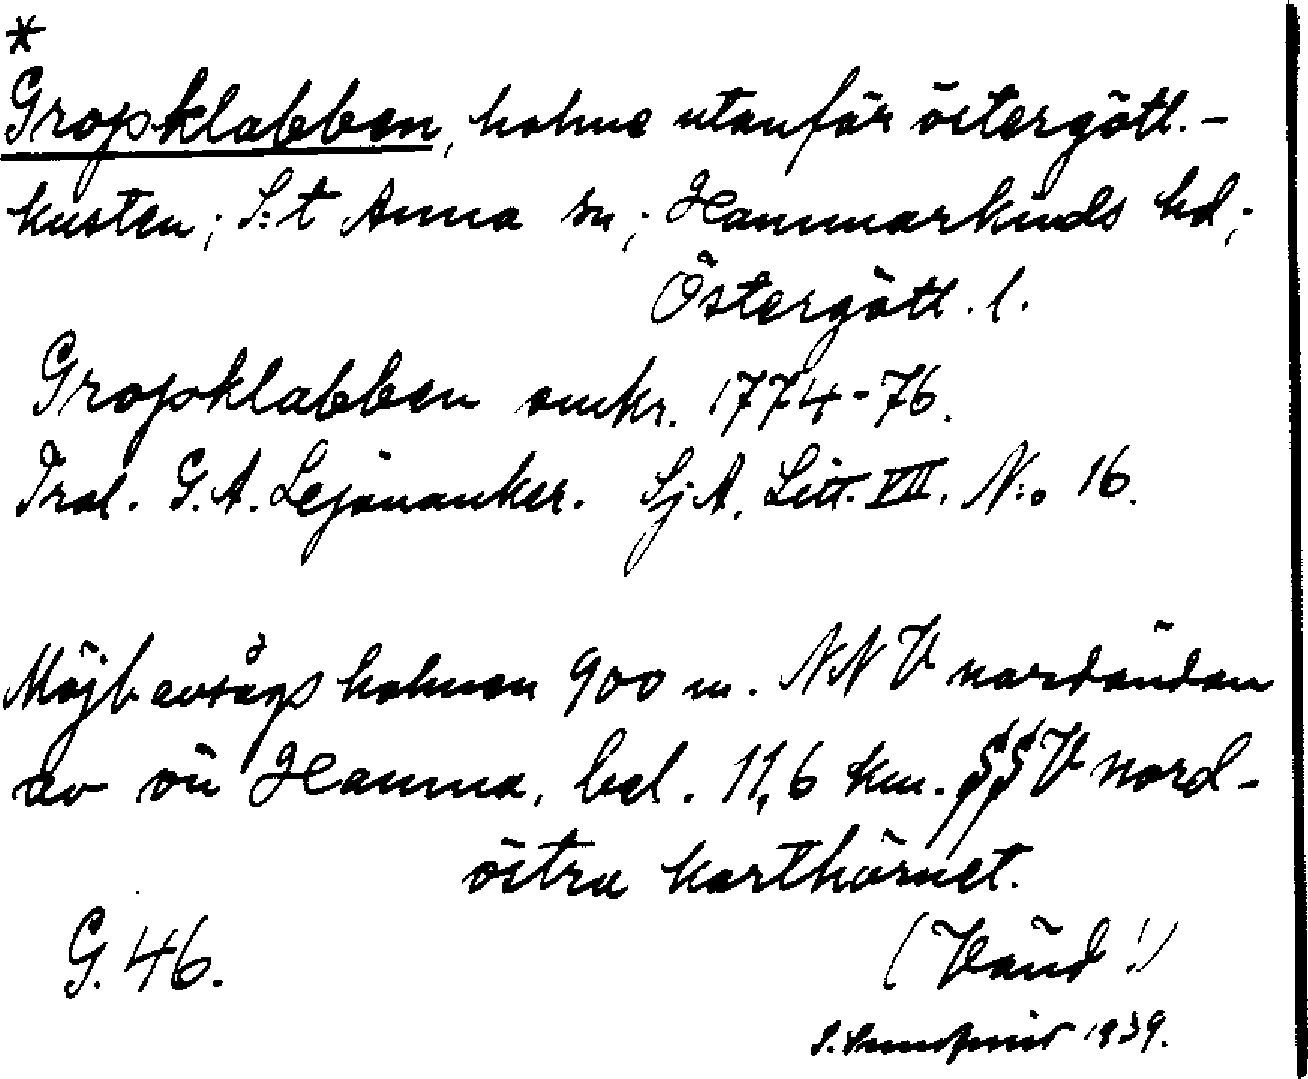 *
Gropklabben, holme utanför östergötl.-
kusten; S:t Anna sn; Hammarkinds hd;
Östergötl. l.
Gropklabben omkr. 1774-76.
Trol. G. A. Lejonanker. Sj A. Litt. VII. N:o 16.
Möjl. avsågs holmen 900 m. NNV nordändan
av ön Hamna, bel. 11,6 km. SSV nord-
östra karthörnet.
G. 46.
(Vänd!)
1939.